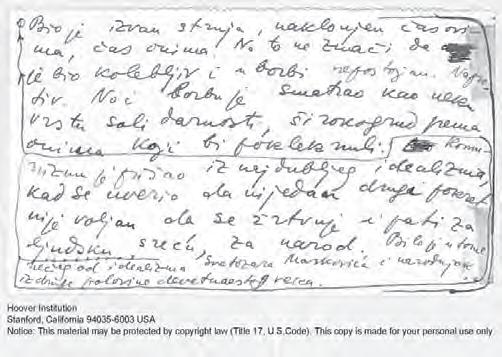 Bio je izvan struja, naklonjen čas ovi
ma, čas onima. No to ne znači da
je bio kolebljiv i u borbi nepostojan. Napro
tiv. No i borbu je smatrao kao neku
vrstu solidarnosti, širokogrud prema
onima koji bi pokleknuli. Komu
nizmu je prišao iz najdubljeg idealizma,
kad se uverio da nijedan drugi pokret
nije voljan da se žrtvuje i pati za
ljudsku sreću, za narod. Bilo je u tome
nečeg od idealizma Svetozara Markovića i narodnjaka
iz druge polovine devetnaestog veka.
Hoover Institution
Stanford, California 94035-6003 USA
Notice: This material may be protected by copyright law (Title 17, U.S.Code). This copy is made for your personal use only